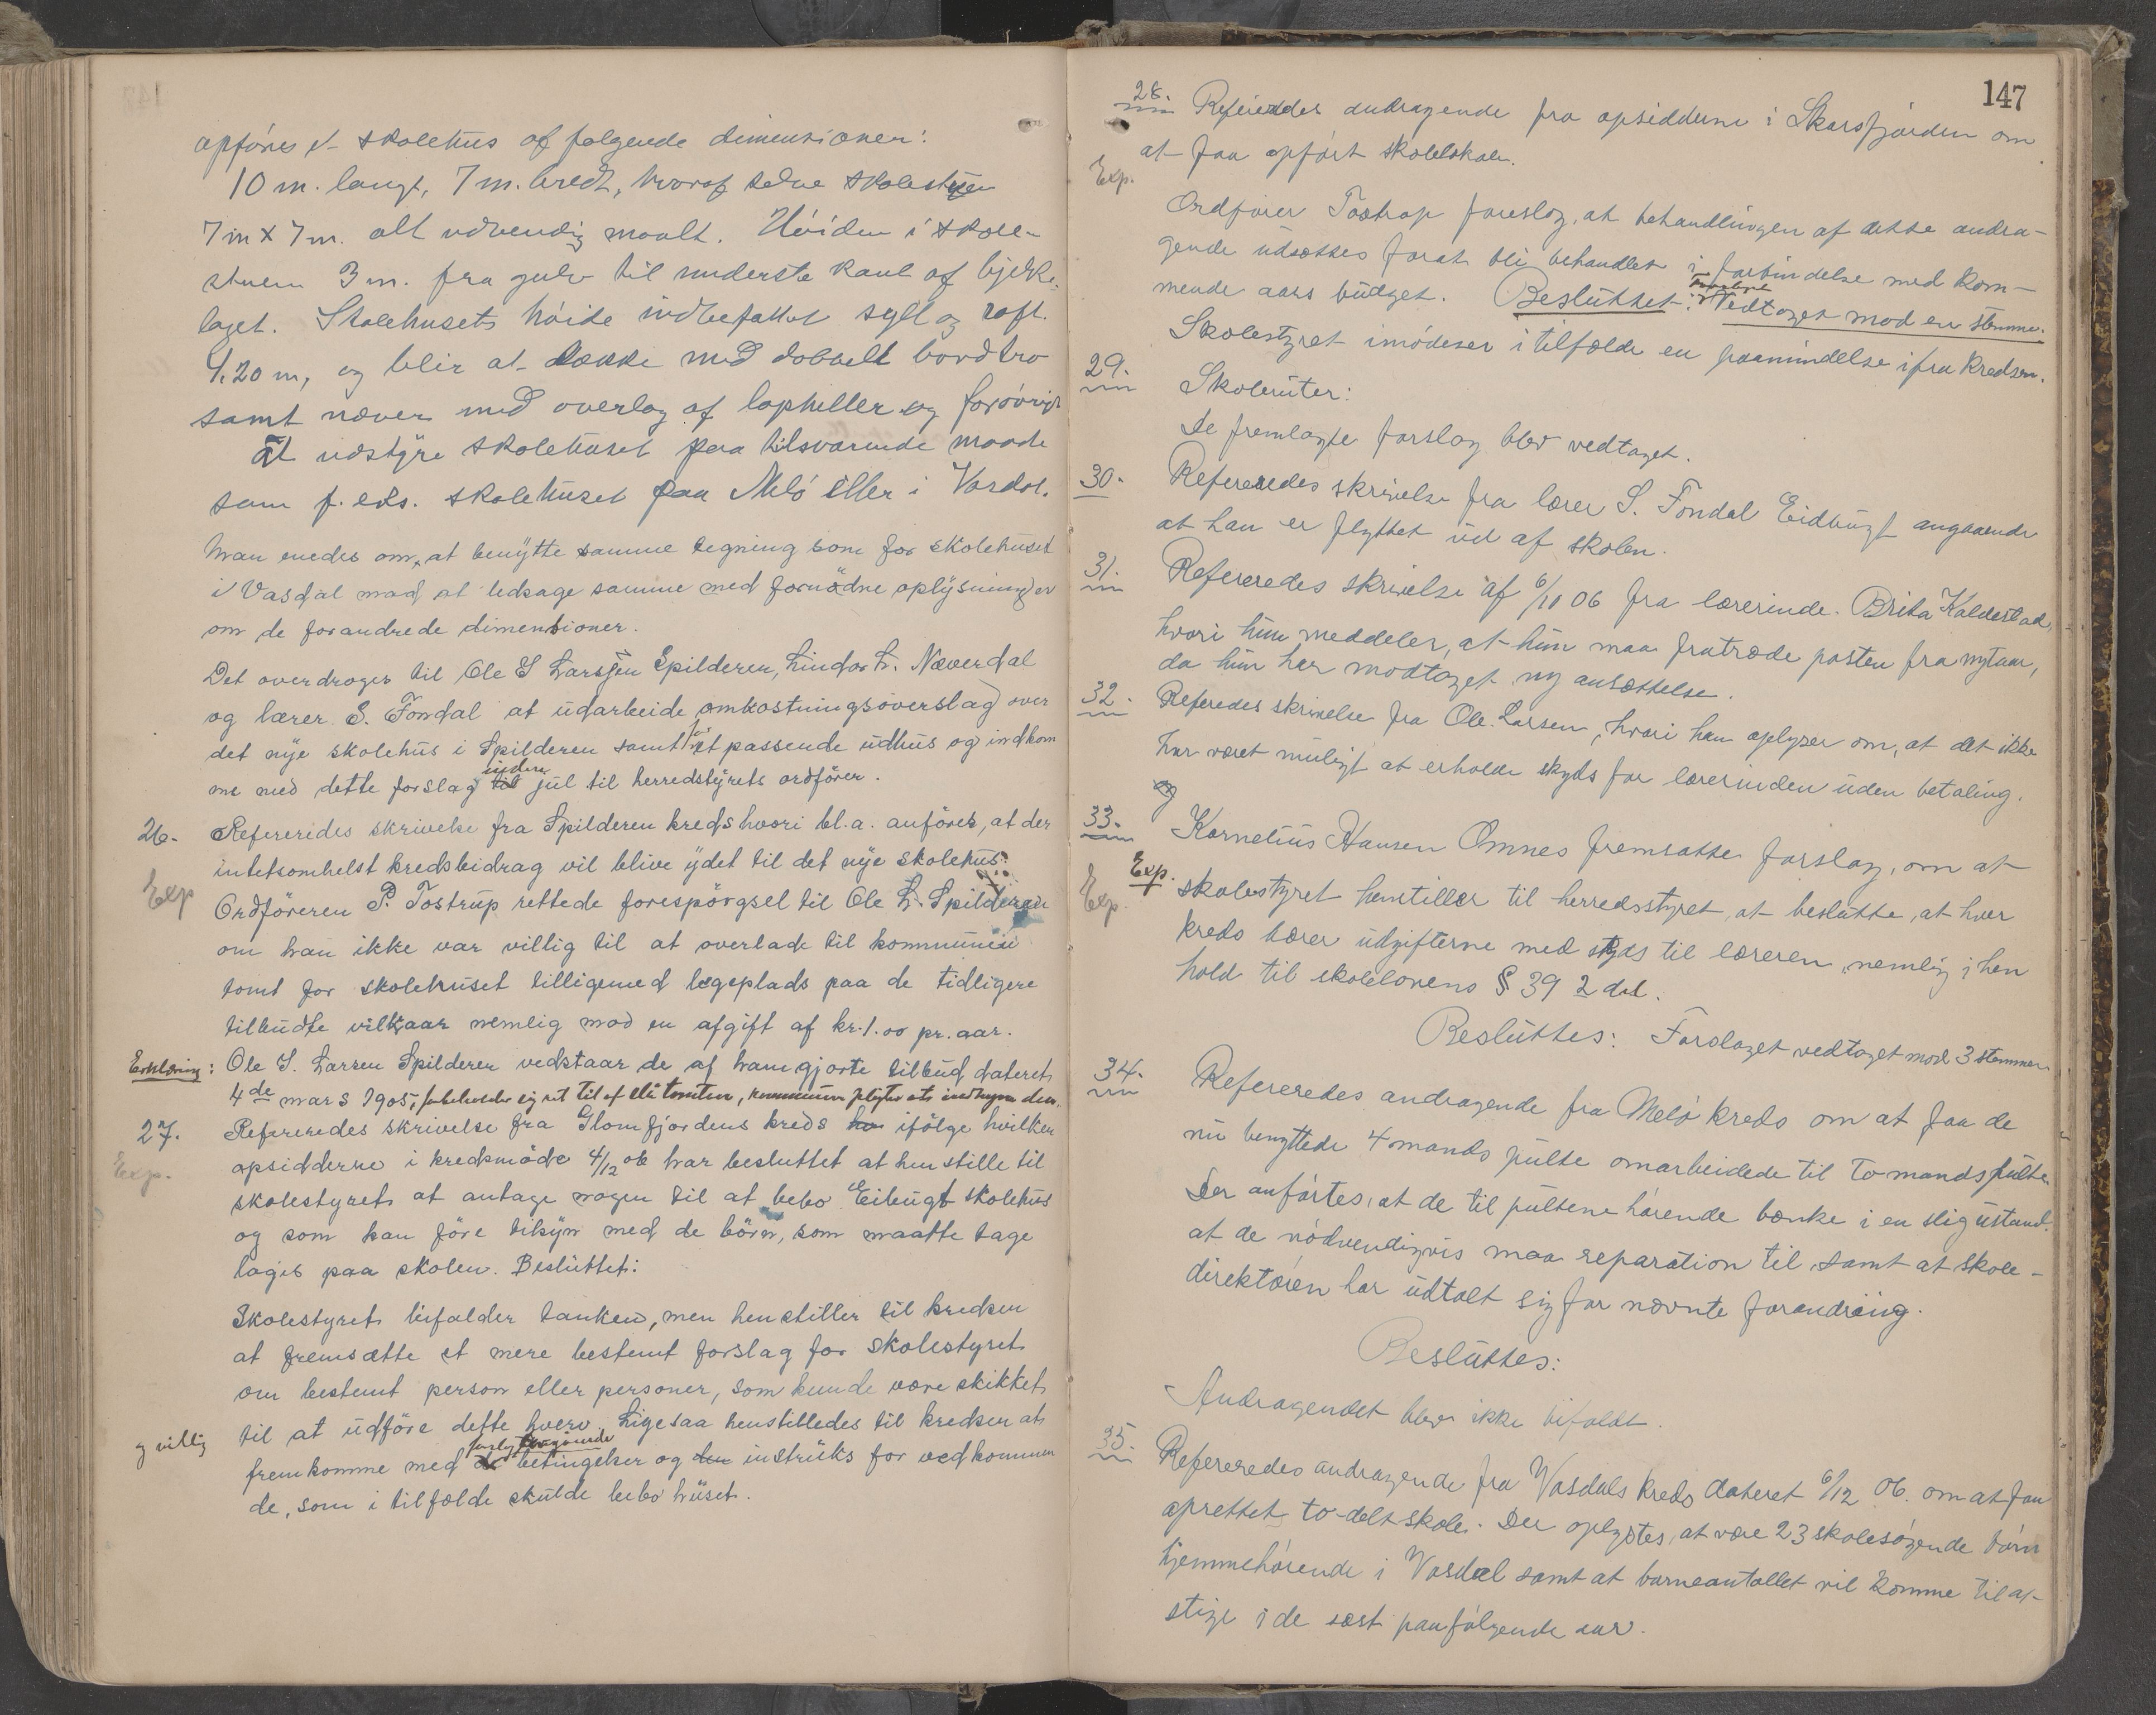 opføres et skolehus af følgende dimensioner:
10 m. langt, 7 m. bredt, hvoraf selve skolestuen
7 m x 7 m. alt udvendig maalt. Høiden i skole-
stuen 3 m. fra gulv til underste kant af bjelke-
laget. Skolehusets høide indbefattet syll og raft.
4.20 m, og blir at tække med dobbelt bordtro
samt næver med overlag af lapheller og forøvrigt
at udstyre skolehuset paa tilsvarende maade
som f. eks. skolehuset paa Melø eller i Vasdal.
Man enedes om, at benytte samme tegning som for skolehuset
i Vasdal mod at ledsage samme med fornødne oplysninger
om de forandrede dimensioner.
Det overdroges til Ole S Larssen Spilderen, Lindor L. Næverdal
og lærer S. Fondal at udarbeide omkostningsoverslag over
det nye skolehus i Spilderen samt for et passende udhus og indkom
me med dette forslag til inden jul til herredstyrets ordfører.
26. Refereredes skrivelse fra Spilderen kreds hvori bl.a. anføres, at der
intetsomhelst kredsbidrag vil blive ydet til det nye skolehus.
Exp
Ordføreren P. Tostrup rettede forespørgsel til Ole L. Spilderen
om han ikke var villig til at overlade til kommunen
tomt for skolehuset tilligemed legeplads paa de tidligere
tilbudte vilkaar nemlig mod en afgift af kr. 1.00 pr. aar.
Erklæring: Ole S. Larsen Spilderen vedstaar de af ham gjorte tilbud dateret
4de mars 1905, forbeholder sig ret til at slå tomten, kommunen pligter at indhegne den.
27. Refereredes skrivelse fra Glomfjordens kreds ha ifølge hvilken
opsidderne i kredsmøde 4/12 06 har besluttet at henstille til
Exp.
skolestyret at antage nogen til at bebo Eibugt skolehus
og som kan føre tilsyn med de børn, som maatte tage
logis paa skolen. Besluttet:
Skolestyret bifalder tanken, men henstiller til kredsen
at fremsætte et mere bestemt forslag for skolestyret
om bestemt person eller personer, som kunde være skikket
og villig til at udføre dette hverv. Ligesaa henstilledes til kredsen at
fremkomme med de forslag angaaende betingelser og den instruks for vedkommen
de, som i tilfælde skulde bebo huset.
147
28. Refereredes andragende fra opsidderne i Skarsfjorden om
at faa opført skolelokale.
Exp.
Ordfører Tostrup foreslog, at behandlingen af dette andra-
gende udsættes forat bli behandlet i forbindelse med kom-
mende aars budget. Besluttet: Forslaget Vedtaget mod en stemme.
Skolestyret imødeser i tilfælde en paamindelse ifra kredsen.
29. Skoleruter:
De fremlagte forslag blev vedtaget.
30. Refereredes skrivelse fra lærer S. Fondal Eidbugt angaaende
at han er flyttet ud af skolen.
31. Refereredes skrivelse af 6/10 06 fra lærerinde Brita Kaldestad,
hvori hun meddeler, at hun maa fratræde posten fra nytaar,
da hun har modtaget ny ansættelse.
32. Referedes skrivelse fra Ole Larsen, hvori han oplyser om, at det ikke
har været muligt at erholde skyds for lærerinden uden betaling.
og
33. Kornelius Hansen Omnes fremsatte forslag, om at
Exp. skolestyret henstiller til herredsstyret, at beslutte, at hver
Exp. kreds bærer udgifterne med skyds til læreren, nemlig i hen
hold til skolelovens § 39 2 del.
Besluttes: Forslaget vedtaget mod 3 stemmer
34. Refereredes andragende fra Melø kreds om at faa de
nu benyttede 4 mands pulte omarbeidede til to mandspulte.
Der anførtes, at de til pultene hørende bænke i en slig ustand.
at de nødvendigvis maa reparation til, samt at skole-
direktøren har udtalt sig for nævnte forandring.
Besluttes:
Andragendet blev ikke bifaldt.
35. Refereredes andragende fra Vasdals kreds dateret 6/12 06. om at faa
oprettet to-delt skole. Der oplystes, at være 23 skolesøgende børn
hjemmehørende i Vasdal samt at barneantallet vil komme til at
stige i de næst paafølgende aar.